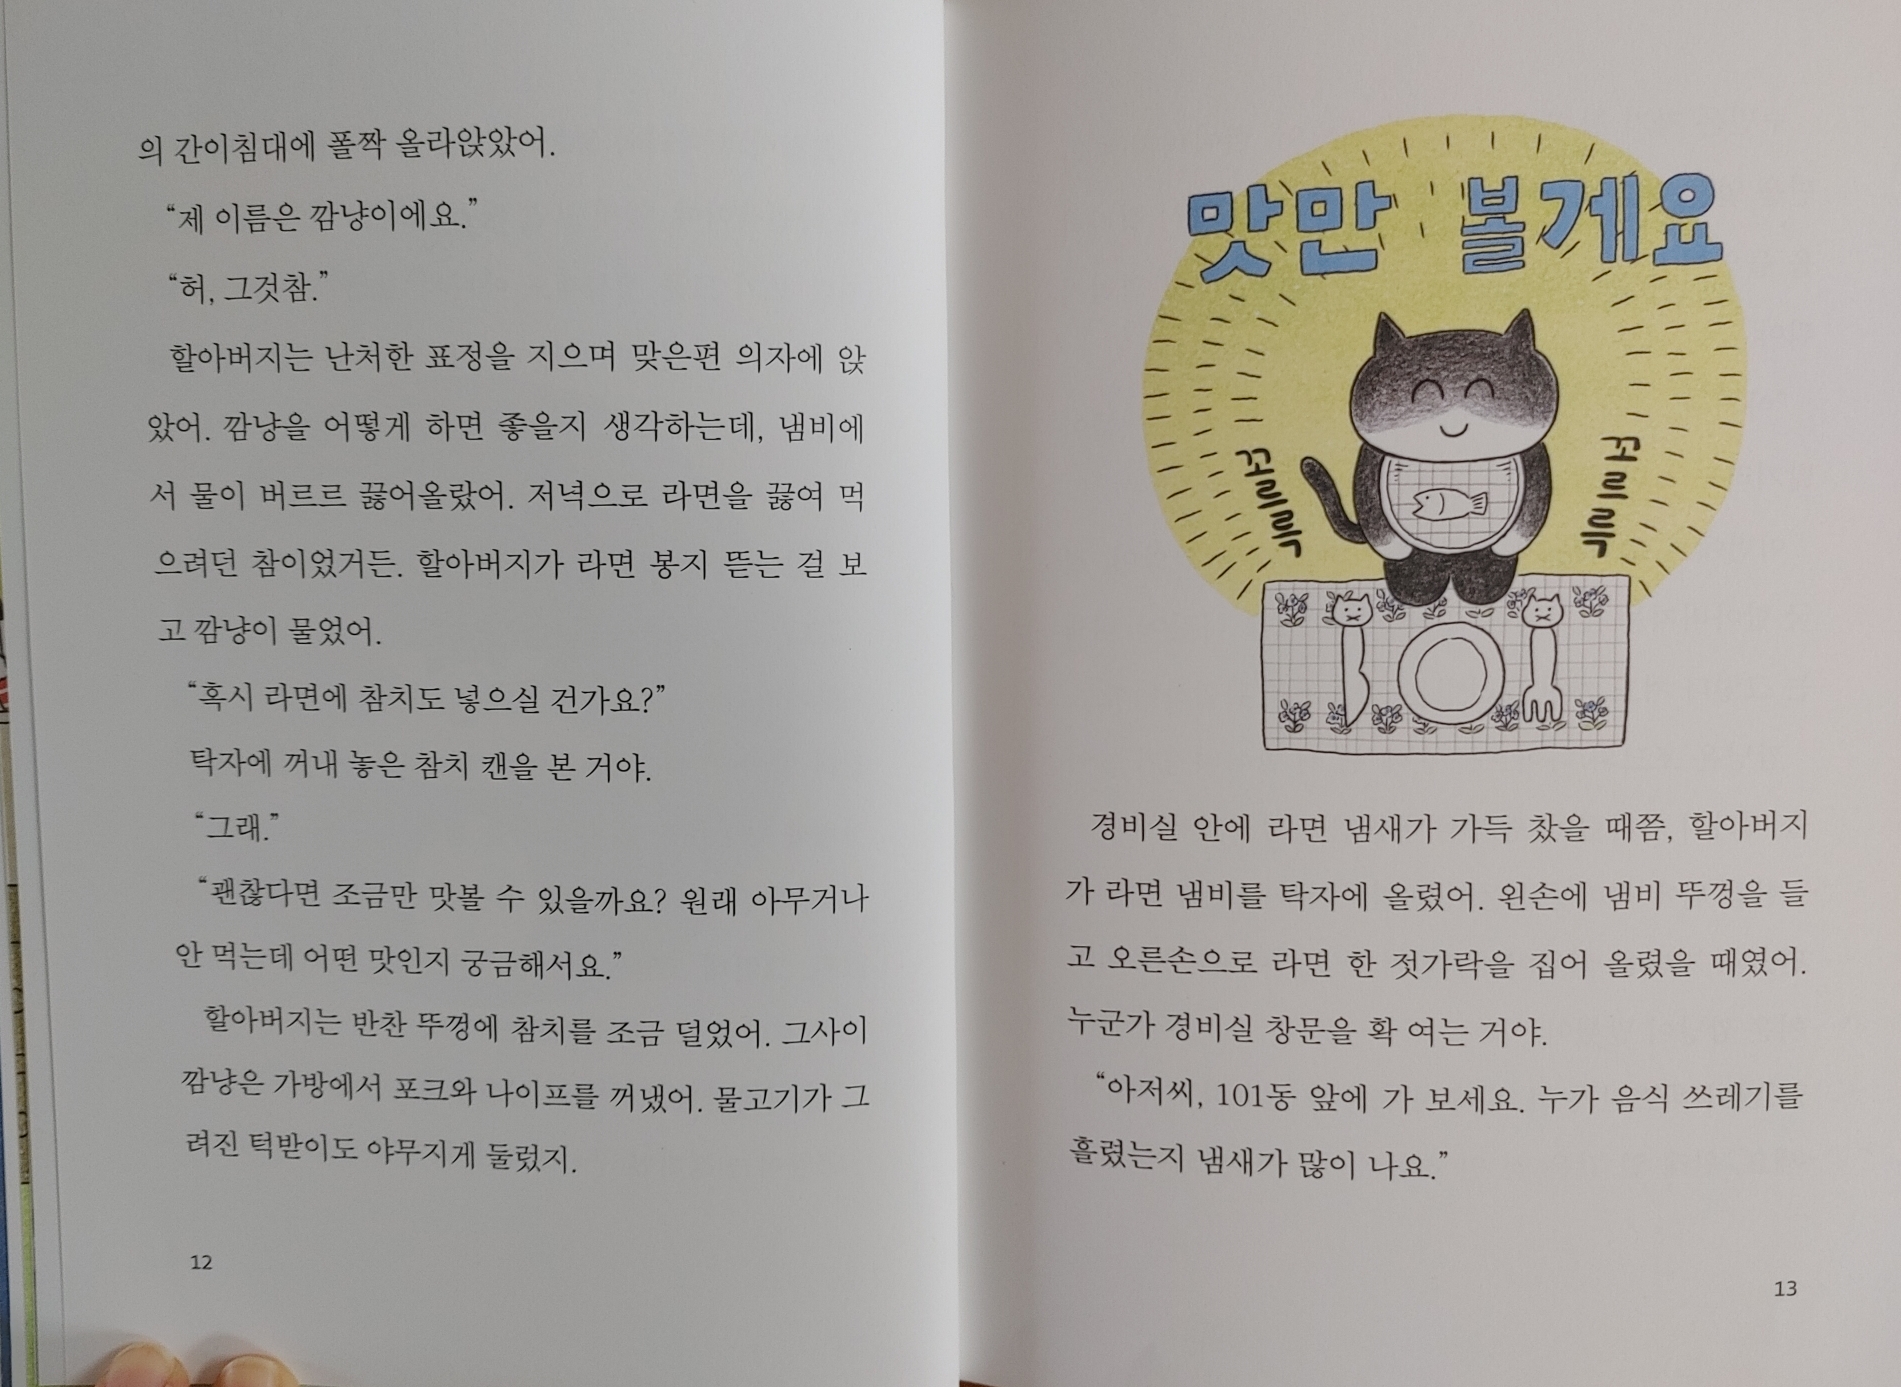 의 간이침대에 폴짝 올라앉았어.
“제 이름은 깜냥이에요.”
“허, 그것참.”
할아버지는 난처한 표정을 지으며 맞은편 의자에 앉
았어. 깜냥을 어떻게 하면 좋을지 생각하는데, 냄비에
서 물이 버르르 끓어올랐어. 저녁으로 라면을 끓여 먹
으려던 참이었거든. 할아버지가 라면 봉지 뜯는 걸 보
고 깜냥이 물었어.
“혹시 라면에 참치도 넣으실 건가요?”
탁자에 꺼내 놓은 참치 캔을 본 거야.
“그래.”
“괜찮다면 조금만 맛볼 수 있을까요? 원래 아무거나
안 먹는데 어떤 맛인지 궁금해서요.”
할아버지는 반찬 뚜껑에 참치를 조금 덜었어. 그사이
깜냥은 가방에서 포크와 나이프를 꺼냈어. 물고기가 그
려진 턱받이도 야무지게 둘렀지.
12
맛만 볼게요
꼬르륵
꼬르륵
경비실 안에 라면 냄새가 가득 찼을 때쯤, 할아버지
가 라면 냄비를 탁자에 올렸어. 왼손에 냄비 뚜껑을 들
고 오른손으로 라면 한 젓가락을 집어 올렸을 때였어.
누군가 경비실 창문을 확 여는 거야.
“아저씨, 101동 앞에 가 보세요. 누가 음식 쓰레기를
흘렸는지 냄새가 많이 나요.”
13